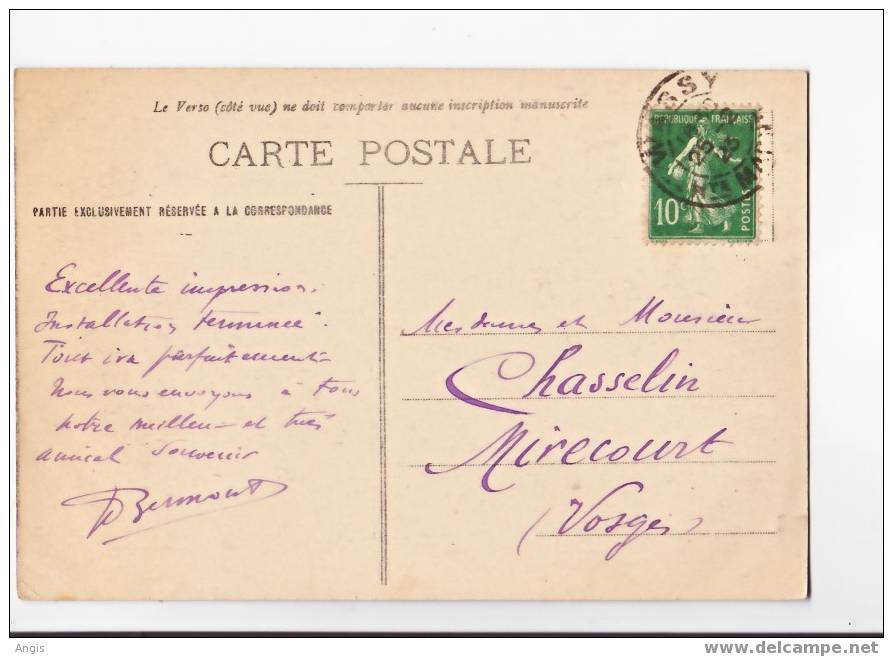 Le Verso (côté vue) ne doit comporter aucune inscription manuscrite
CARTE POSTALE
PARTIE EXCLUSIVEMENT RÉSERVÉE A LA CORRESPONDANCE
REPUBLIQUE FRANÇAISE
10c
POSTES
WASSY
Hte MARNE
Excellente impression.
Installation terminée.
Tout ira parfaitement
Nous vous envoyons à tous
notre meilleur et très
amical souvenir
Bermont
Mesdames et Monsieur
Chasselin
Mirecourt
(Vosges)
Angis
www.delcampe.net